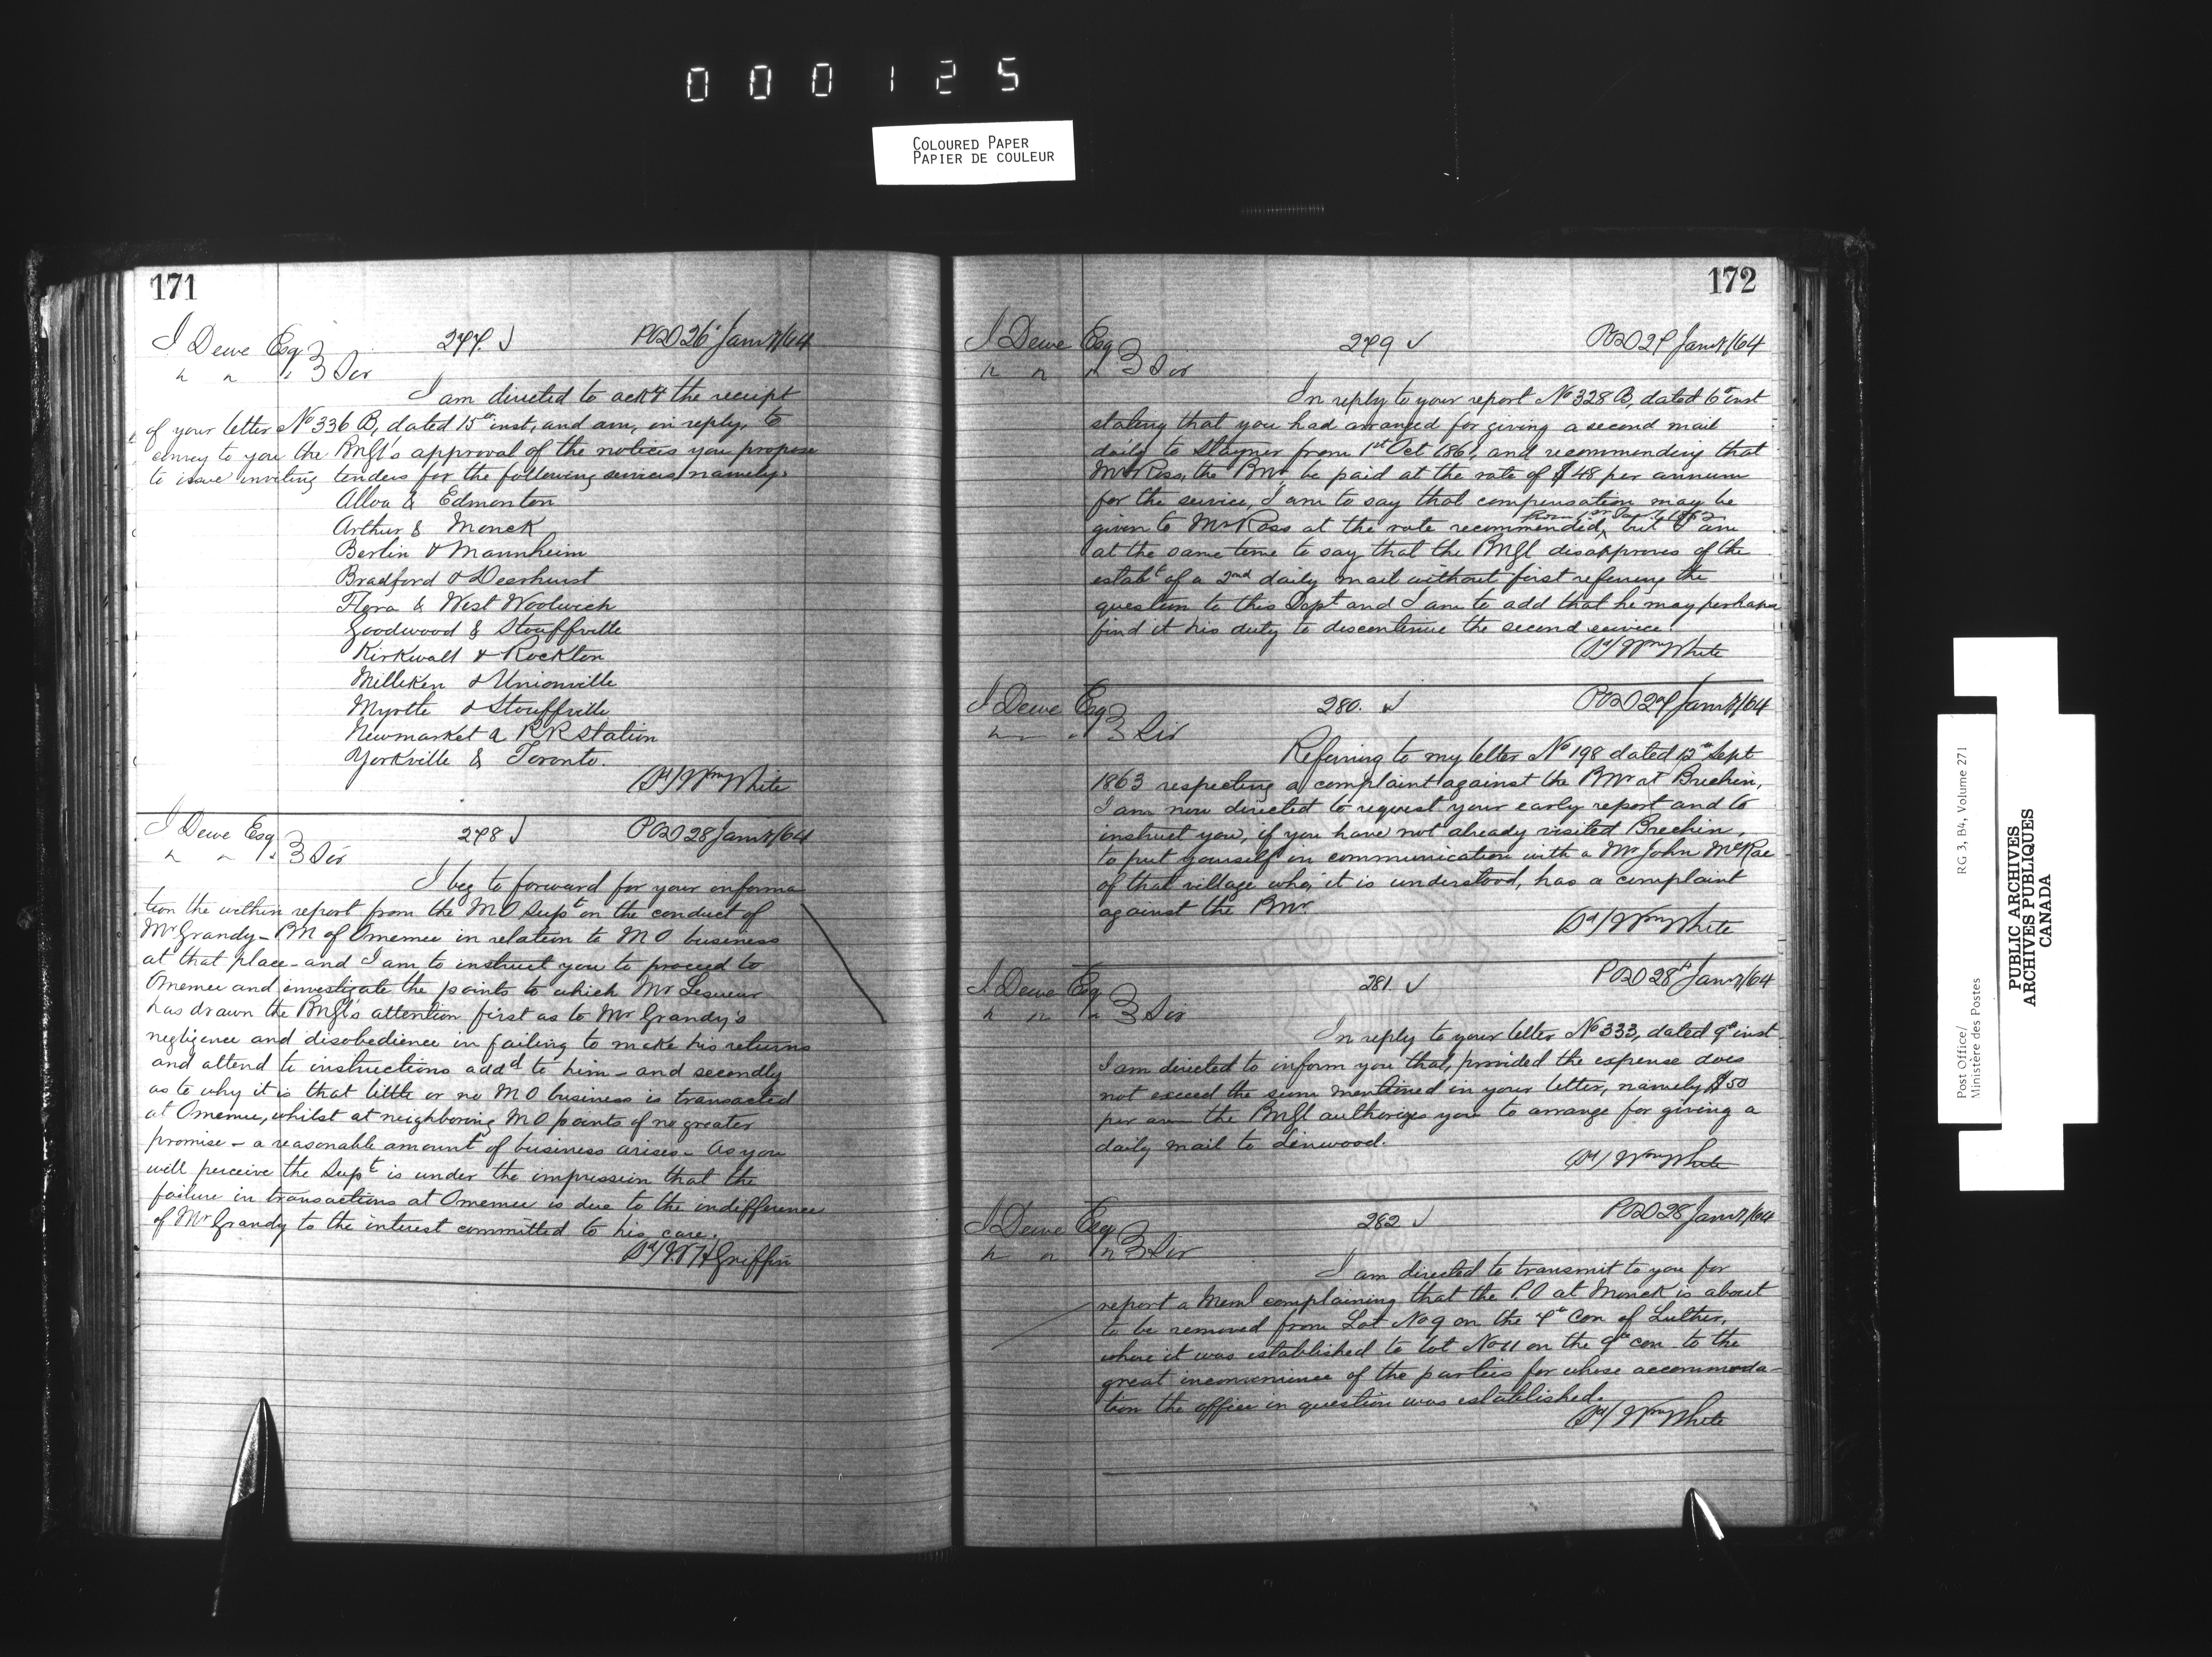 000125
COLOURED PAPER
PAPIER DE COULEUR
171
J Dewe Esq 277. √ POD 26 Jany/64
" " " } Sir
I am directed to ackg the receipt
of your letter No 336 B, dated 15th inst, and am, in reply, to
convey to you the PMGl's approval of the notices you propose
to issue inviting tenders for the following services, namely,
Alloa & Edmonton
Arthur & Monck
Berlin & Mannheim
Bradford & Deerhurst
Flora & West Woolwich
Goodwood & Stouffville
Kirkwall & Rockton
Milliken & Unionville
Myrtle & Stouffville
Newmarket & RR Station
Yorkville & Toronto.
Sd/ Wm White
J Dewe Esq 278 √ POD 28 Jany/64
" " " } Sir
I beg to forward for your informa
tion the within report from the MO Supt on the conduct of
Mr Grandy - PM of Omemee in relation to MO business
at that place - and I am to instruct you to proceed to
Omemee and investigate the points to which Mr Lesueur
has drawn the PMGl's attention first as to Mr Grandy's
negligence and disobedience in failing to make his returns
and attend to instructions addd to him - and secondly
as to why it is that little or no MO business is transacted
at Omemee, whilst at neighboring MO points of no greater
promise - a reasonable amount of business arises - As you
will perceive the Supt is under the impression that the
failure in transactions at Omemee is due to the indifference
of Mr Grandy to the interest committed to his care.
Sd/ W H Griffin
172
J Dewe Esq 279 √ POD 27 Jany/64
" " " } Sir
In reply to your report No 328 B, dated 6th inst
stating that you had arranged for giving a second mail
daily to Stayner from 1st Oct 1861, and recommending that
Mr Ross, the PMr be paid at the rate of $48 per annum
for the service, I am to say that compensation may be
from 1st Jany 1862
given to Mr Ross at the rate recommended, but I am
at the same time to say that the PMGl disapproves of the
estabt of a 2nd daily mail without first referring the
question to this Dept and I am to add that he may perhaps
find it his duty to discontinue the second service.
Sd/ Wm White
J Dewe Esq 280. √ POD 27 Jany/64
" " " } Sir
Referring to my letter No 198 dated 12th Sept
1863 respecting a complaint against the PMr at Brechin,
I am now directed to request your early report and to
instruct you, if you have not already visited Brechin,
to put yourself in communication with a Mr John McRae
of that village who, it is understood, has a complaint
against the PMr.
Sd/ Wm White
J Dewe Esq 281. √ POD 28th Jany/64
" " " } Sir
In reply to your letter No 333, dated 9th inst
I am directed to inform you that, provided the expense does
not exceed the sum mentioned in your letter, namely $50
per ann the PMGl authorizes you to arrange for giving a
daily mail to Linwood.
Sd/ Wm White
J Dewe Esq 282 √ POD 28 Jany/64
" " " } Sir
I am directed to transmit to you for
report a Meml complaining that the P.O at Monck is about
to be removed from Lot No 9 on the 7th Con of Luther,
where it was established to lot No 11 on the 9th con to the
great inconvenience of the parties for whose accommoda-
tion the office in question was established.
Sd/ Wm White
Post Office/
Ministère des Postes
RG 3, B4, Volume 271
PUBLIC ARCHIVES
ARCHIVES PUBLIQUES
CANADA